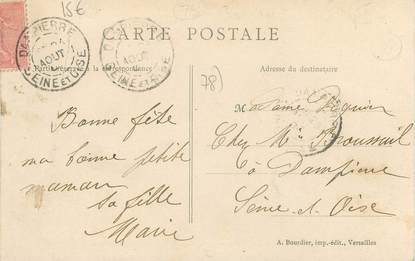 15€
CARTE POSTALE
DAMPIERRE
AOUT
SEINE ET OISE
Partie réservée à la correspondance
Adresse du destinataire
78)
Bonne fête
ma bonne petite
maman
sa fille
Marie
Madame
Chez Mr
à Dampierre
Seine et Oise
A. Bourdier, imp.-édit., Versailles